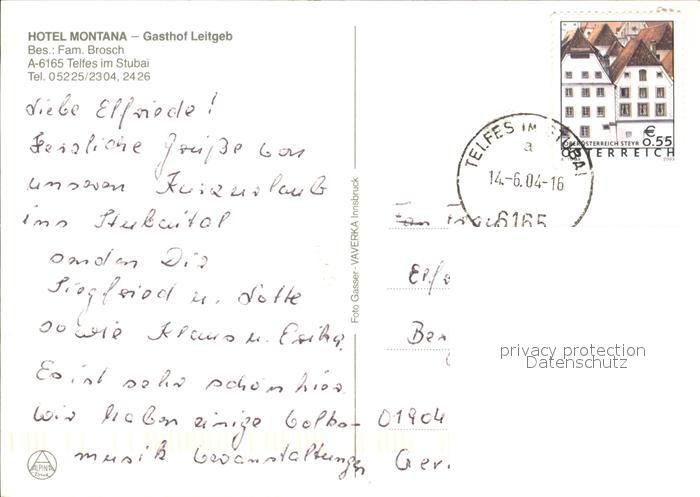 HOTEL MONTANA – Gasthof Leitgeb
Bes.: Fam. Brosch
A-6165 Telfes im Stubai
Tel. 05225/2304, 2426
Liebe Elfriede!
Herzliche Grüße von
unseren Kurzurlaub
ins Stubaital
senden Dir
Siegfried u. Lotte
sowie Klaus u. Erika.
Es ist sehr schön hier.
Wir haben einige Volks-
musik Veranstaltungen
ALPINA
Druck
Foto Gasser - VAVERKA Innsbruck
€
0.55
OBERÖSTERREICH STEYR
ÖSTERREICH
2003
TELFES IM STUBAI
a
14.-6.04-16
6165
Frau
Elf
Ber
01904
Ger.
privacy protection
Datenschutz